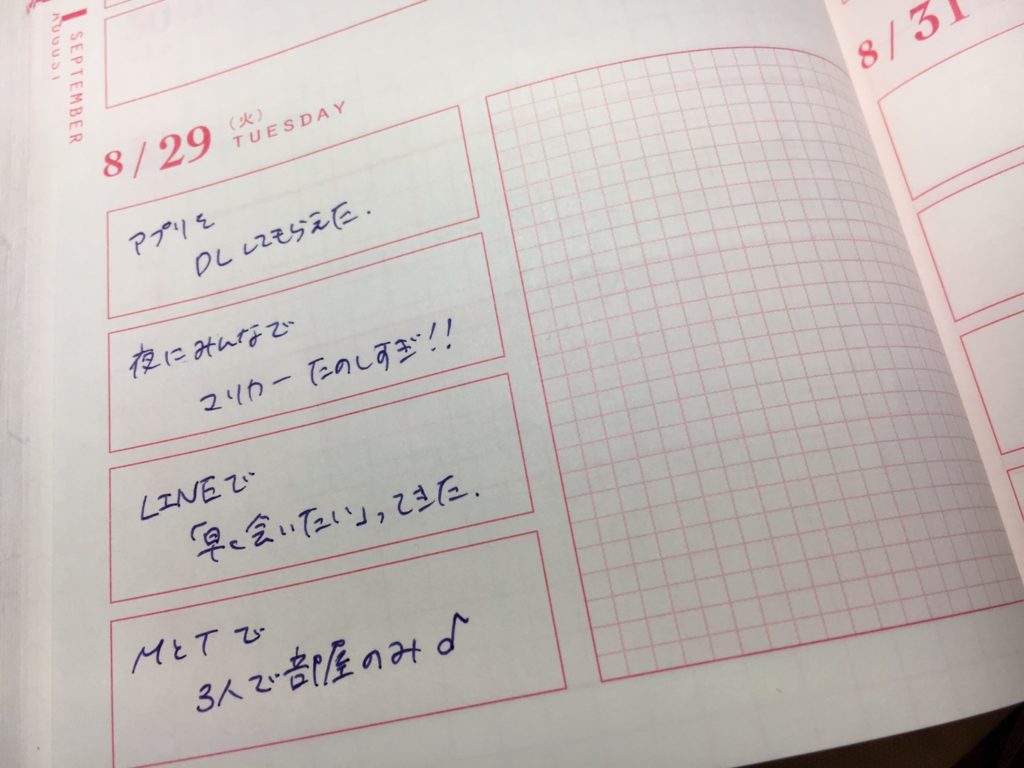 SEPTEMBER
AUGUST
8/29 (火)
TUESDAY
アプリを
DLしてもらえた.
夜にみんなで
マリカー たのしすぎ!!
LINEで
「早く会いたい」, てきた.
MとTで
3人で部屋のみ♪
8/31